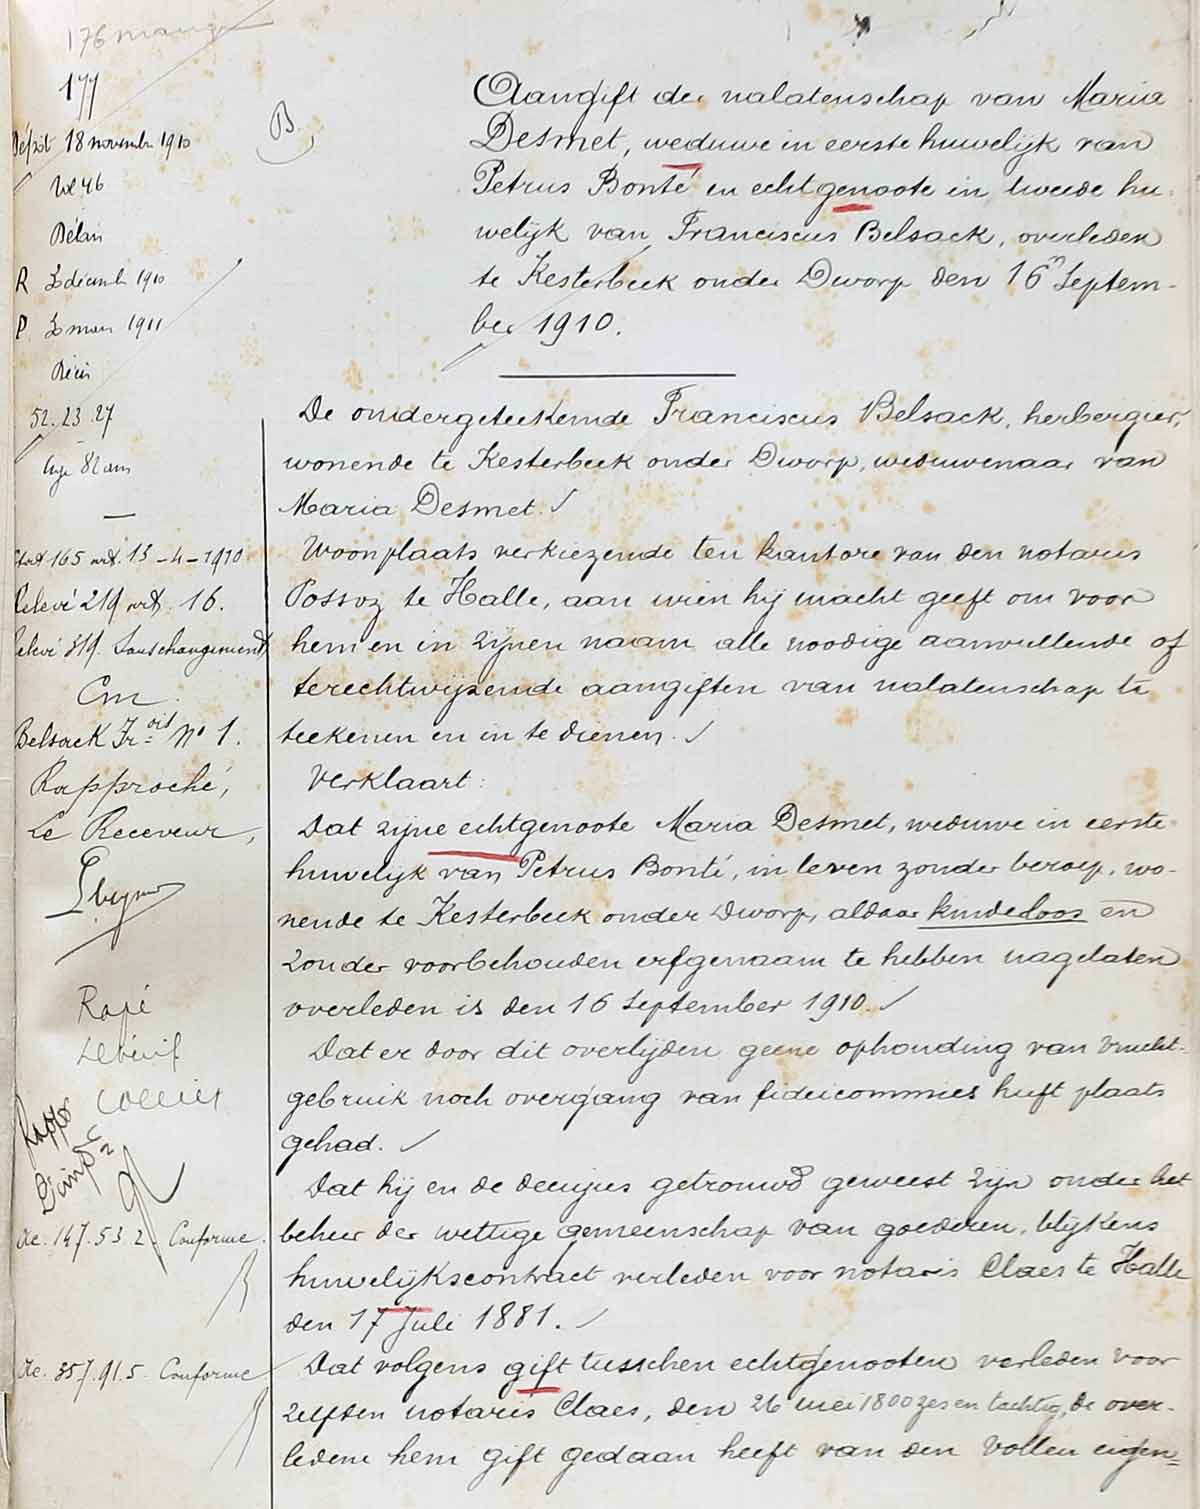 177
Dépôt 18 novembre 1910
Vol 46
Délai
R 3 décemb 1910
P. 3 mars 1911
Décès
52. 23. 27
Age 82 ans
B
Aangift der nalatenschap van Maria
Desmet, weduwe in eerste huwelijk van
Petrus Bonté en echtgenoote in tweede hu-
welijk van Franciscus Belsack, overleden
te Kesterbeek onder Dworp den 16n Septem-
ber 1910.
De ondergeteekende Franciscus Belsack, herbergier,
wonende te Kesterbeek onder Dworp, weduwenaar van
Maria Desmet.
Woonplaats verkiezende ten kantore van den notaris
Possoz te Halle, aan wien hij macht geeft om voor
hem en in zijnen naam alle noodige aanvullende of
terechtwijzende aangiften van nalatenschap te
teekenen en in te dienen.
Verklaart:
Dat zijne echtgenoote Maria Desmet, weduwe in eerste
huwelijk van Petrus Bonté, in leven zonder beroep, wo-
nende te Kesterbeek onder Dworp, aldaar kinderloos en
zonder voorbehouden erfgenaam te hebben nagelaten
overleden is den 16 September 1910.
Dat er door dit overlijden geene ophouding van vrucht-
gebruik noch overgang van fideicommies heeft plaats
gehad.
Dat hij en de decujus getrouwd geweest zijn onder het
beheer der wettige gemeenschap van goederen, blijkens
huwelijkscontract verleden voor notaris Claes te Halle
den 17 Juli 1881.
Dat volgens gift tusschen echtgenooten verleden voor
zelfden notaris Claes, den 26 mei 1800 zes en tachtig, de over-
ledene hem gift gedaan heeft van den vollen eigen=
165 art. 13-4-1910
Relevé 219 art. 16.
Relevé 319. Sans changement
Cm
Belsack Frois No 1.
Rapproché,
Le Receveur,
Rapé
147. 53. 2. Conforme.
357. 91. 5. Conforme